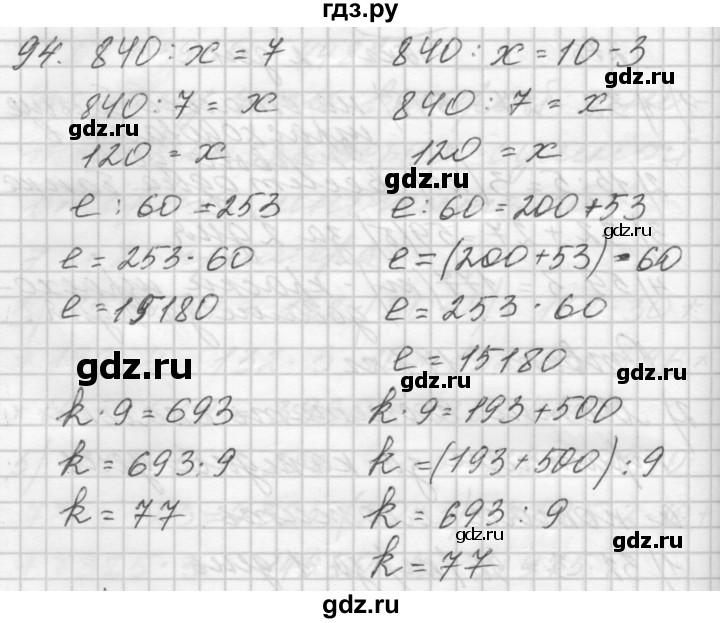 гдз.ру
94. 840 : x = 7
840 : 7 = x
120 = x
e : 60 = 253
e = 253 · 60
e = 15180
k · 9 = 693
k = 693 : 9
k = 77
840 : x = 10 - 3
840 : 7 = x
120 = x
e : 60 = 200 + 53
e = (200 + 53) · 60
e = 253 · 60
e = 15180
k · 9 = 193 + 500
k = (193 + 500) : 9
k = 693 : 9
k = 77
gdz.ru
gdz.ru
gdz.ru
gdz.ru
gdz.ru
gdz.ru
gdz.ru
gdz.ru
gdz.ru
gdz.ru
gdz.ru